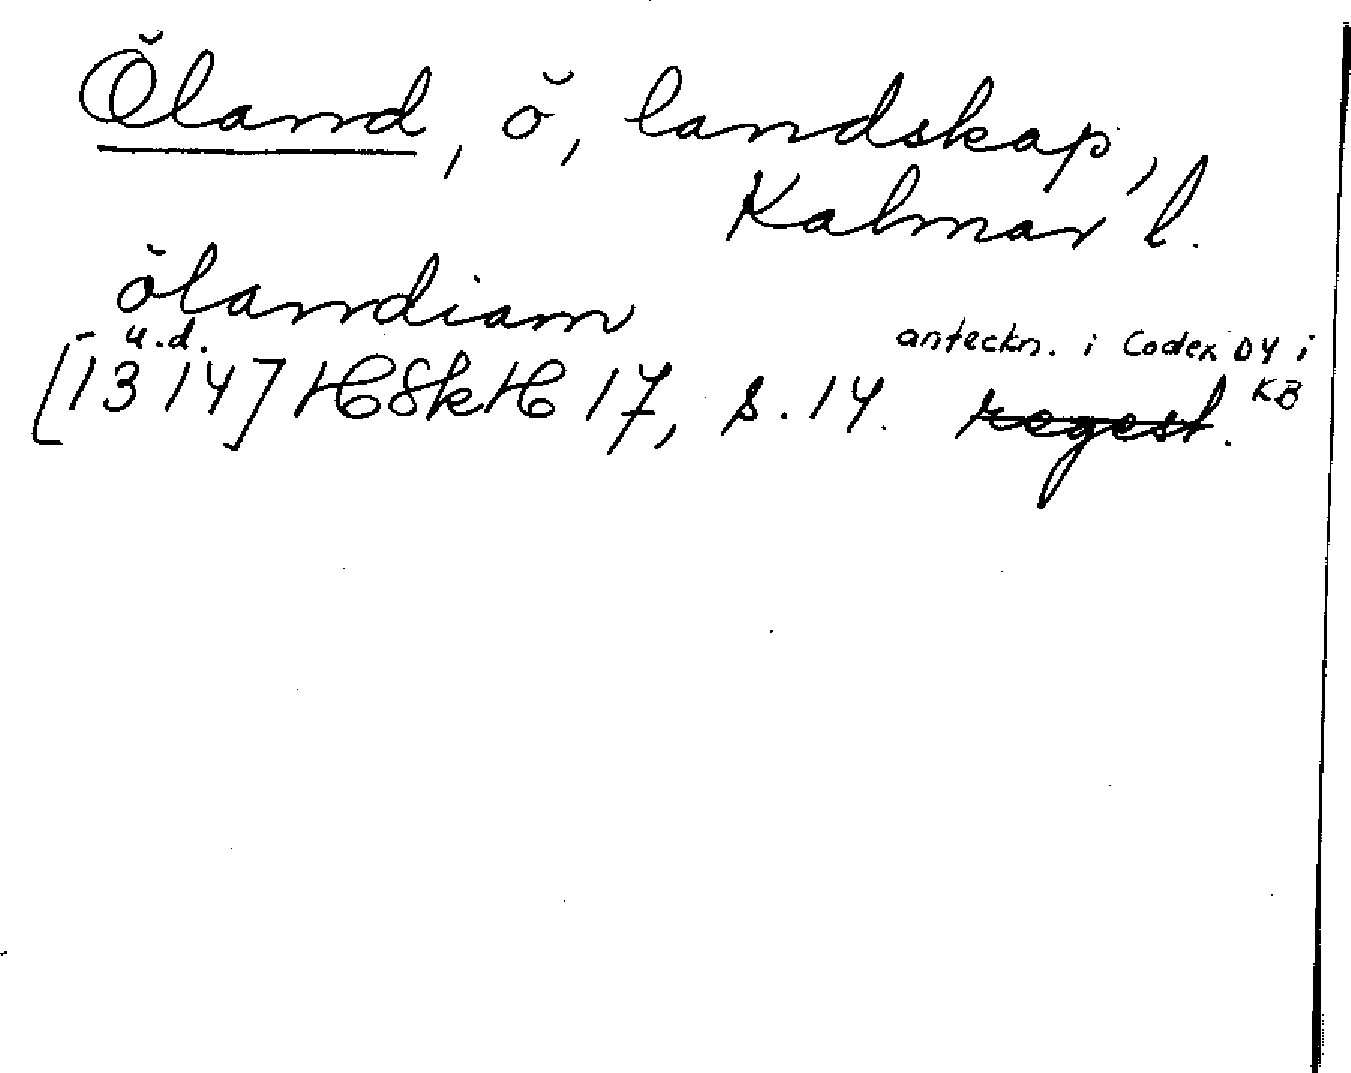 Öland, ö, landskap,
Kalmar l.
ölandiam
u.d. anteckn. i Codex D4 i
[1314] HSkH 17, s. 14. regest. KB